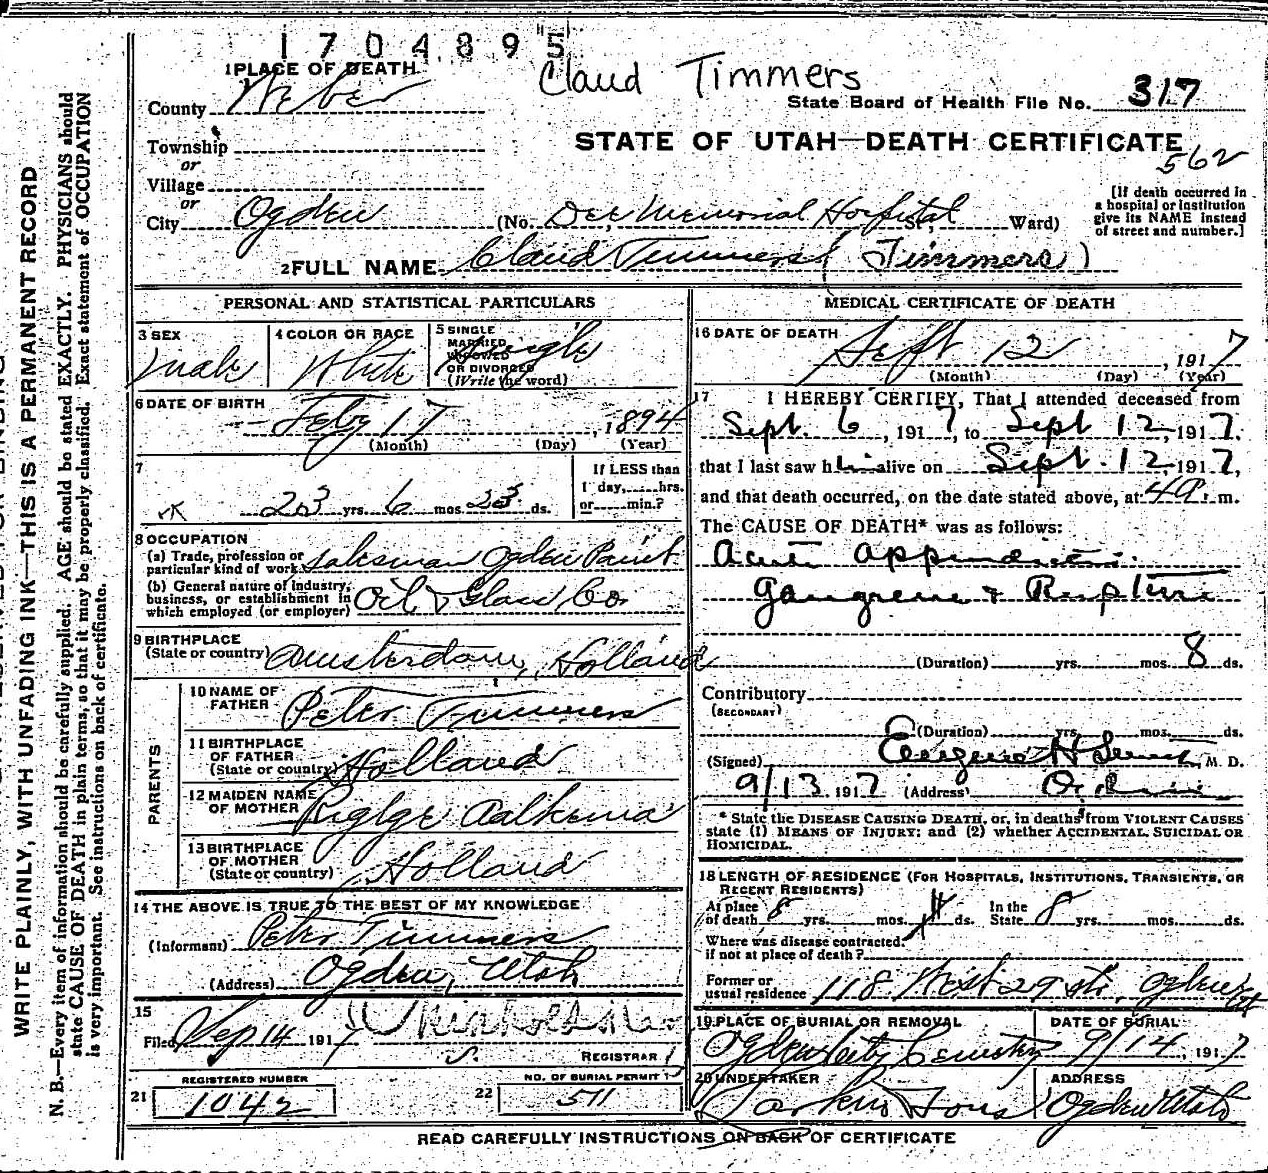 1704895
Claud Timmers
1 PLACE OF DEATH
County Weber
State Board of Health File No. 317
Township
STATE OF UTAH—DEATH CERTIFICATE
562
or
Village
or
City Ogden (No. Dee Memorial Hospital St., Ward)
[If death occurred in
a hospital or institution
give its NAME instead
of street and number.]
2 FULL NAME Claud Timmers (Timmers)
PERSONAL AND STATISTICAL PARTICULARS
3 SEX
Male
4 COLOR OR RACE
White
5 SINGLE
MARRIED
WIDOWED
OR DIVORCED
(Write the word)
Single
6 DATE OF BIRTH
Feby 17, 1894
(Month) (Day) (Year)
7
23 yrs. 6 mos. 23 ds.
If LESS than
1 day, hrs.
or min.?
8 OCCUPATION
(a) Trade, profession or
particular kind of work Salesman Ogden Paint
(b) General nature of industry,
business, or establishment in
which employed (or employer) Oil & Glass Co
9 BIRTHPLACE
(State or country) Amsterdam, Holland
PARENTS
10 NAME OF
FATHER Peter Timmers
11 BIRTHPLACE
OF FATHER
(State or country) Holland
12 MAIDEN NAME
OF MOTHER
13 BIRTHPLACE
OF MOTHER
(State or country) Holland
14 THE ABOVE IS TRUE TO THE BEST OF MY KNOWLEDGE
(Informant) Peter Timmers
(Address) Ogden, Utah
15
Filed Sep 14 1917
REGISTRAR
21 REGISTERED NUMBER
1042
22 NO. OF BURIAL PERMIT
511
MEDICAL CERTIFICATE OF DEATH
16 DATE OF DEATH
Sept 12, 1917
(Month) (Day) (Year)
17 I HEREBY CERTIFY, That I attended deceased from
Sept. 6, 1917, to Sept 12, 1917.
that I last saw him alive on Sept. 12, 1917,
and that death occurred, on the date stated above, at 4 P. m.
The CAUSE OF DEATH* was as follows:
Acute appendicitis.
Gangrene & Rupture
(Duration) yrs. mos. 8 ds.
Contributory
(SECONDARY)
(Duration) yrs. mos. ds.
(Signed) Eugene H Smith, M. D.
9/13 1917 (Address) Ogden
* State the DISEASE CAUSING DEATH, or, in deaths from VIOLENT CAUSES
state (1) MEANS OF INJURY; and (2) whether ACCIDENTAL, SUICIDAL OR
HOMICIDAL.
18 LENGTH OF RESIDENCE (FOR HOSPITALS, INSTITUTIONS, TRANSIENTS, OR
RECENT RESIDENTS)
At place
of death 8 yrs. mos. ds.
In the
State 8 yrs. mos. ds.
Where was disease contracted,
if not at place of death?
Former or
usual residence 118 West 29 St, Ogden Ut
19 PLACE OF BURIAL OR REMOVAL
Ogden City Cemetery
DATE OF BURIAL
9/14, 1917
20 UNDERTAKER
Larkin & Sons
ADDRESS
Ogden Utah
READ CAREFULLY INSTRUCTIONS ON BACK OF CERTIFICATE
WRITE PLAINLY, WITH UNFADING INK—THIS IS A PERMANENT RECORD
N. B.—Every item of information should be carefully supplied. AGE should be stated EXACTLY. PHYSICIANS should
state CAUSE OF DEATH in plain terms, so that it may be properly classified. Exact statement of OCCUPATION
is very important. See instructions on back of certificate.